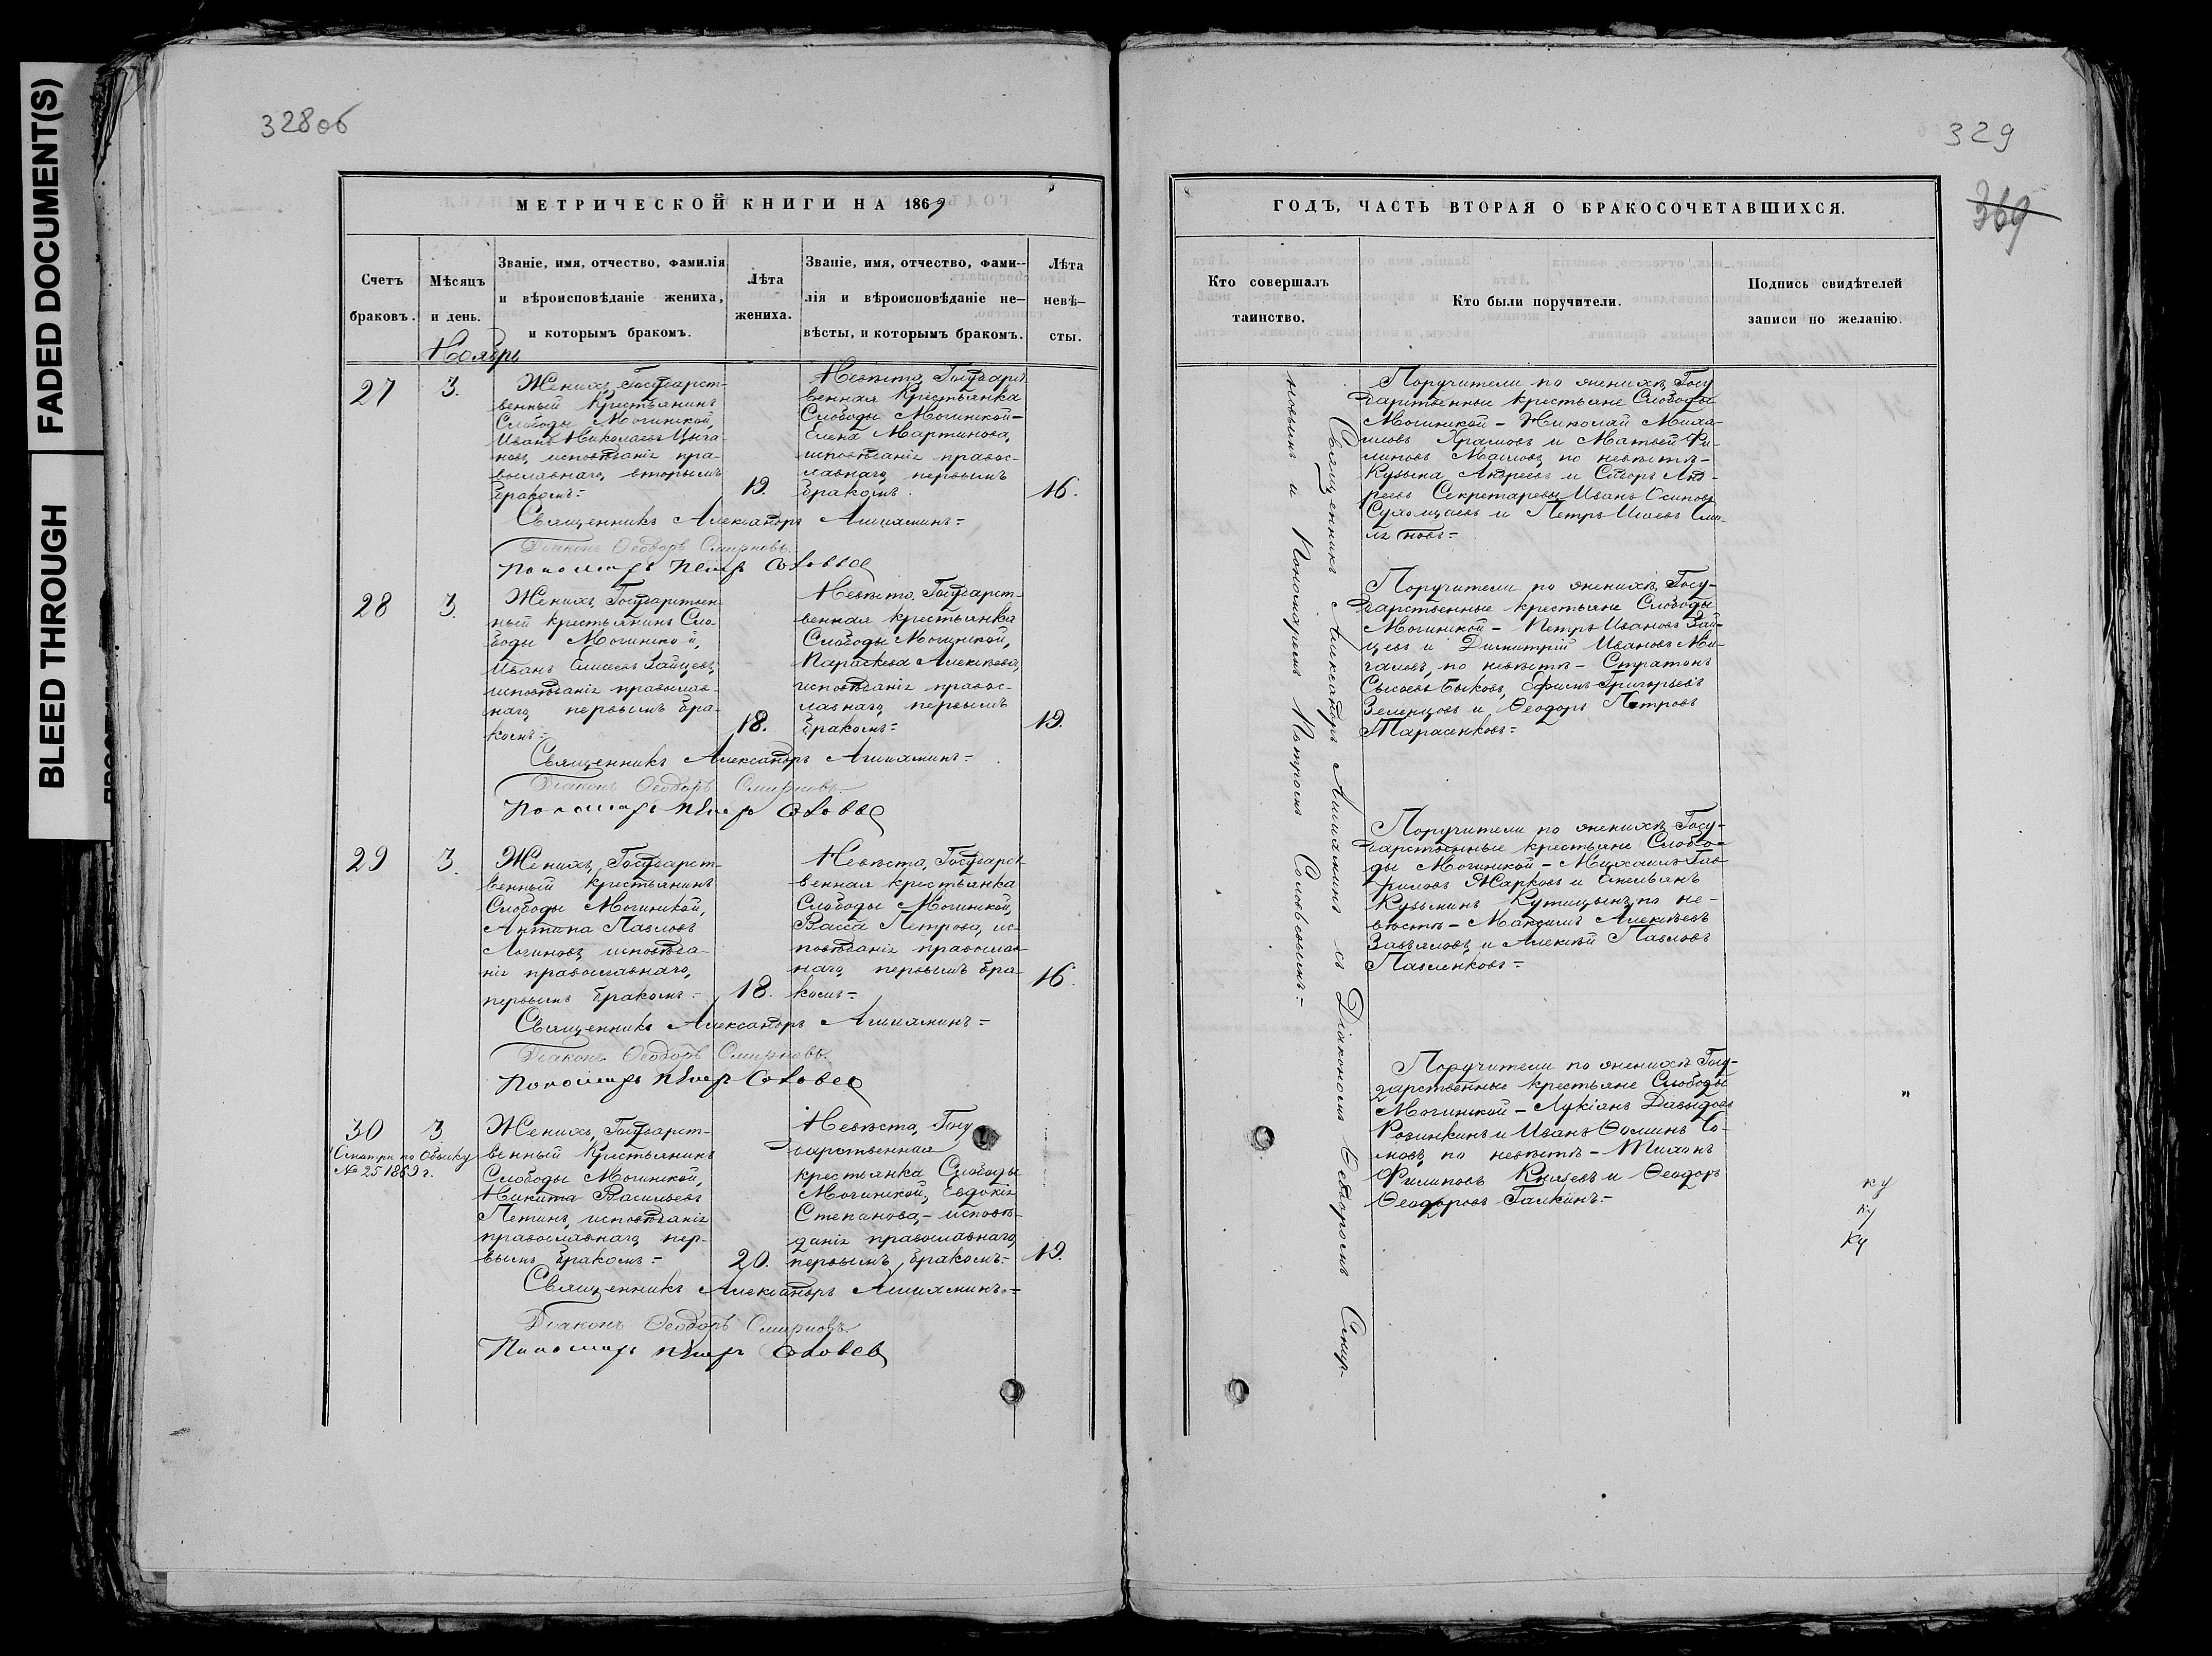 FADED DOCUMENT(S)
BLEED THROUGH
328об
МЕТРИЧЕСКОЙ КНИГИ НА 1869
Счетъ браковъ.
Мѣсяцъ и день.
Званіе, имя, отчество, фамилія
и вѣроисповѣданіе жениха,
и которымъ бракомъ.
Лѣта жениха.
Званіе, имя, отчество, фами-
лія и вѣроисповѣданіе не-
вѣсты, и которымъ бракомъ.
Лѣта невѣ-
сты.
Ноябрь
27
3.
Женихъ, Государст-
венный Крестьянинъ
Слободы
Иванъ Николаевъ Цыга-
новъ, исповѣданія пра-
вославнаго, вторымъ
бракомъ=
19.
Невѣста, Государст
венная Крестьянка
Слободы
Елена Мартинова,
исповѣданія правос-
лавнаго, первымъ
бракомъ.
16.
Священникъ Александръ
Діаконъ Ѳеодоръ Смирновъ
Пономарь Петръ
28
3.
Женихъ, Государствен
ный крестьянинъ Сло
боды
Иванъ Зайцевъ,
исповѣданія православ-
наго, первымъ бра-
комъ=
18.
Невѣста, Государст-
венная крестьянка
Слободы
Параскева Алексѣева,
исповѣданія правос-
лавнаго, первымъ
бракомъ=
19.
Священникъ Александръ
Діаконъ Ѳеодоръ Смирновъ
Пономарь Петръ
29
3.
Женихъ, Государст-
венный крестьянинъ
Слободы
Антипа Павловъ
Логиновъ, исповѣда-
нія православнаго,
первымъ бракомъ=
18.
Невѣста, Государст
венная крестьянка
Слободы
Васса Петрова, ис-
повѣданія православ
наго, первымъ бра-
комъ=
16.
Священникъ Александръ
Діаконъ Ѳеодоръ Смирновъ
Пономарь Петръ
30
3.
Смотри по Обыску
№ 25 1869 г.
Женихъ, Государст-
венный Крестьянинъ
Слободы
Никита Васильевъ
исповѣданія
православнаго, пер-
вымъ бракомъ=
20.
Невѣста, Госу
дарственная
крестьянка Слободы
Евдокія
Степанова,- исповѣ-
данія православнаго,
первымъ бракомъ=
19.
Священникъ Александръ
Діаконъ Ѳеодоръ Смирновъ
Пономарь Петръ
329
369
ГОДЪ, ЧАСТЬ ВТОРАЯ О БРАКОСОЧЕТАВШИХСЯ.
Кто совершалъ
таинство.
Кто были поручители.
Подпись свидѣтелей
записи по желанію.
Священникъ Александръ съ Діакономъ Ѳеодоромъ Смир-
новымъ и Пономаремъ Петромъ Соловьевымъ=
Поручители по женихѣ, Госу
дарственные крестьяне Слободы
Николай Миха-
иловъ и Матвей Фи-
липовъ Масловъ, по невѣстѣ-
Кузьма Андреевъ и Сидоръ Анд-
реевъ Секретаревы Иванъ Осиповъ
и Петръ
Поручители по женихѣ, Госу-
дарственные крестьяне Слободы
Петръ Ивановъ Зай-
цевъ и Димитрій Ивановъ
по невѣстѣ - Стратонъ
Сысоевъ Быковъ, Ефимъ Григорьевъ
Зеленцовъ и Ѳеодоръ Петровъ
Тарасенковъ=
Поручители по женихѣ, Госу-
дарственные крестьяне Слобо-
ды Михаилъ Гав-
риловъ Жарковъ и Емельянъ
Кузьминъ по не-
вѣстѣ - Максимъ Алексѣевъ
Завьяловъ, и Алексѣй Павловъ
Павленковъ=
Поручители по женихѣ Госу-
дарственные крестьяне Слободы
Лукіянъ Давыдовъ
и Иванъ Ѳоминъ Со-
мовъ, по невѣстѣ - Тихонъ
Филиповъ Князевъ и Ѳеодоръ
Ѳеодоровъ Галкинъ=
ку
ку
ку